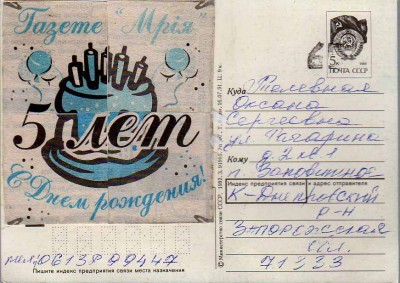 Газете "Мрія"
5 лет
С Днем рождения!
5к
ПОЧТА СССР
Куда Талевная
Оксана
Сергеевна
ул. Гагарина
Кому д. 2 кв 1
г. Заповитное
Индекс предприятия связи и адрес отправителя
К-Днепровский
р-н
Запорожская
обл.
71333
Пишите индекс предприятия связи места назначения
© Министерство связи СССР.